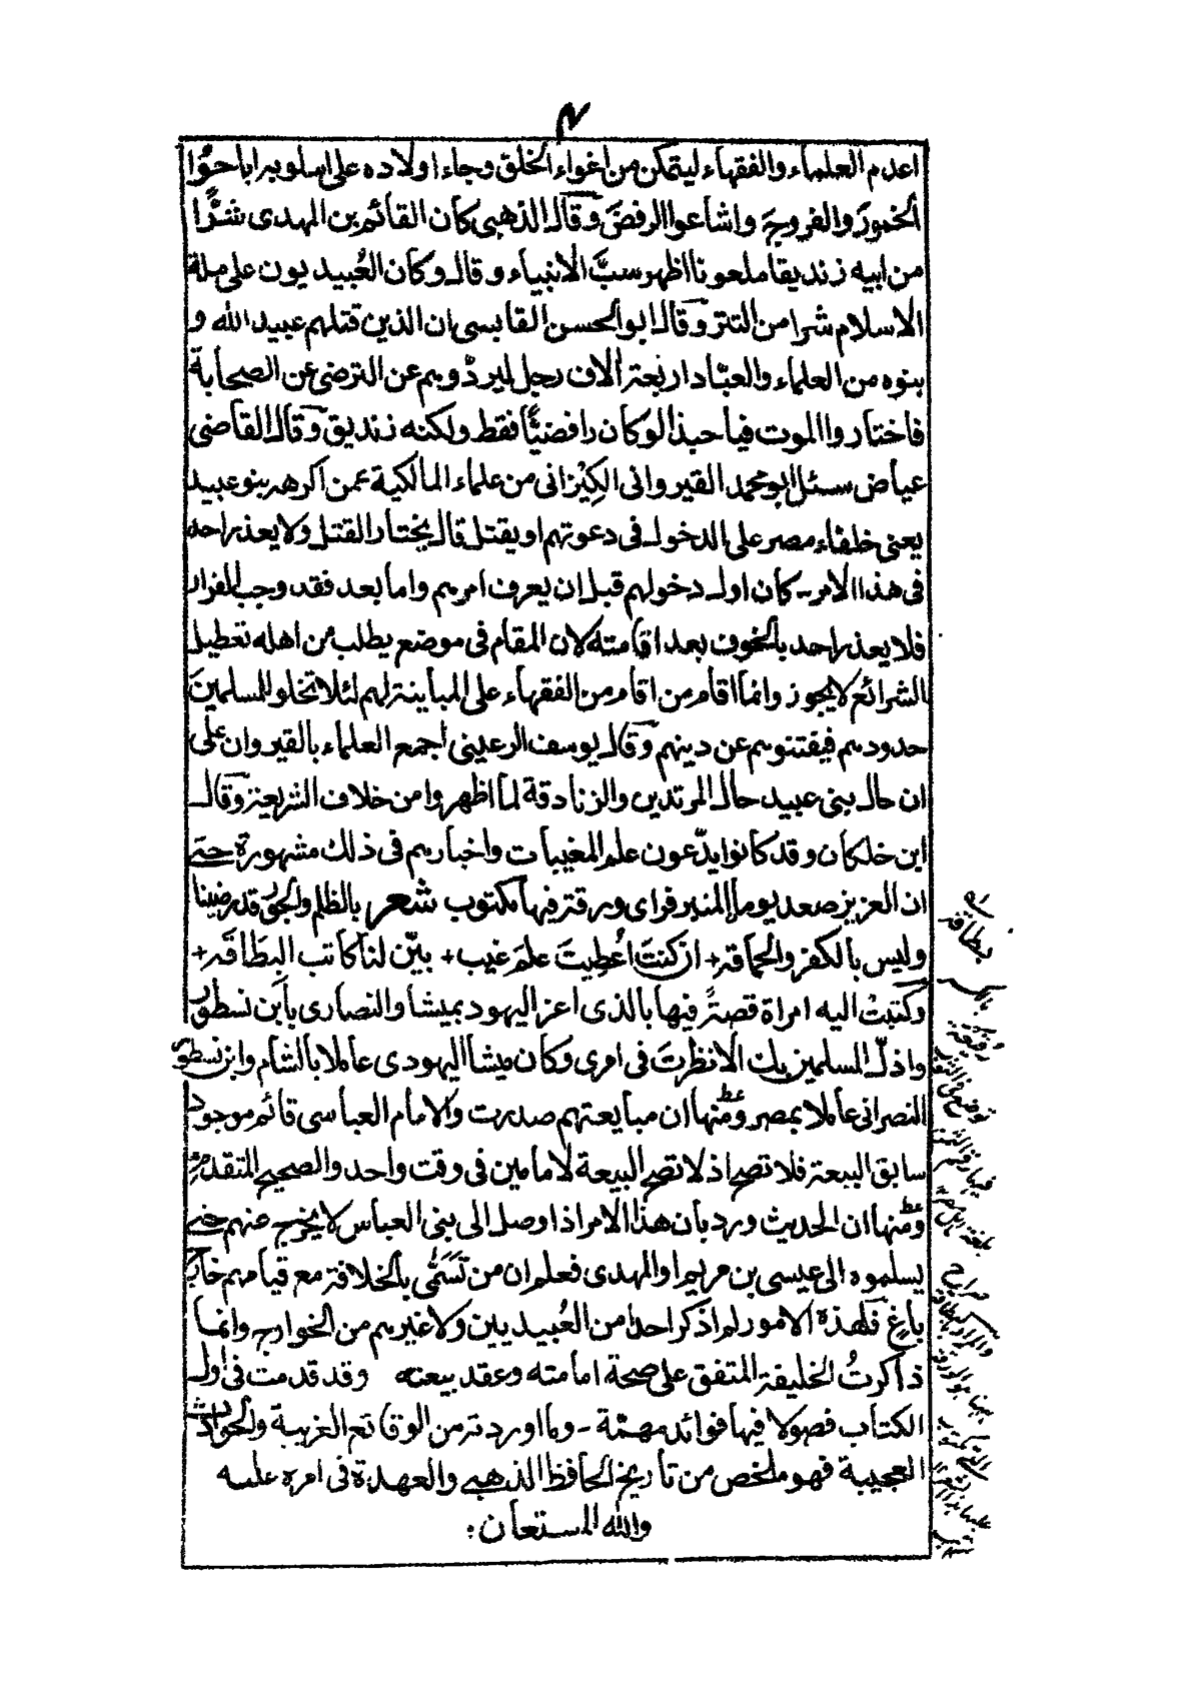 ۷
اعدم العلماء والفقهاء ليتمكن من اغواء الخلق وجاء اولاده على اسلوبه اباحوا
الخمورَ والفروجَ واشاعوا الرفضَ وقال الذهبى كان القائم بن المهدى شرًّا
من ابيه زنديقا ملعونا اظهر سبَّ الانبياء وقال وكان العُبيديون على ملة
الاسلام شرا من التتر وقال ابو الحسن القابسى ان الذين قتلهم عبيد الله و
بنوه من العلماء والعبّاد اربعة آلاف رجل ليردّوهم عن الترضى عن الصحابة
فاختاروا الموت فيا حبذا لو كان رافضيًّا فقط ولكنه زنديق وقال القاضى
عياض سئل ابو محمد القيروانى الكِيْزانى من علماء المالكية عمن اكرهه بنو عبيد
يعنى خلفاء مصر على الدخول فى دعوتهم او يقتل قال يختار القتل ولا يعذر احد
فى هذا الامر ـ كان اول دخولهم قبل ان يعرف امرهم واما بعد فقد وجب الفرار
فلا يعذر احد بالخوف بعد اقامته لان المقام فى موضع يطلب من اهله تعطيل
الشرائع لا يجوز وانما اقام من اقام من الفقهاء على المباينة لهم لئلا تخلو للمسلمين
حدودهم فيفتنوهم عن دينهم وقال يوسف الرعينى اجمع العلماء بالقيروان على
ان حال بنى عبيد حال المرتدين والزنادقة لما اظهروا من خلاف الشريعة وقال
ابن خلكان وقد كانوا يدّعون علم المغيبات واخبارهم فى ذلك مشهورة حتى
ان العزيز صعد يوما المنبر فراى ورقة فيها مكتوب شعر بالظلم والجور قد رضينا
وليس بالكفر والحماقة + ان كنتَ اُعطِيتَ علمَ غيب + بيّن لنا كاتب البِطَاقَه +
وكتبتْ اليه امراة قصةً فيها بالذى اعز اليهود بميشا والنصارى بابن نسطور
واذلّ المسلمين بك الا نظرتَ فى امرى وكان ميشا اليهودى عاملا بالشام وابن نسطور
النصرانى عاملا بمصر ومنها ان مبايعتهم صدرت والامام العباسى قائم موجود
سابق البيعة فلا تصح اذ لا تصح البيعة لامامين فى وقت واحد والصحيح المتقدم
ومنها ان الحديث ورد بان هذا الامر اذا وصل الى بنى العباس لا يخرج عنهم حتى
يسلموه الى عيسى بن مريم او المهدى فعلم ان من تَسَمَّى بالخلافة مع قيامهم خارج
باغٍ فلهذه الامور لم اذكر احدا من العُبيديين ولا غيرهم من الخوارج وانما
ذاكرتُ الخليفة المتفق على صحة امامته وعقد بيعته وقد قدمت فى اول
الكتاب فصولا فيها فوائد مهمّة ـ وما اوردته من الوقائع الغريبة والحوادث
العجيبة فهو ملخص من تاريخ الحافظ الذهبى والعهدة فى امره عليه
والله المستعان :
بطاقة